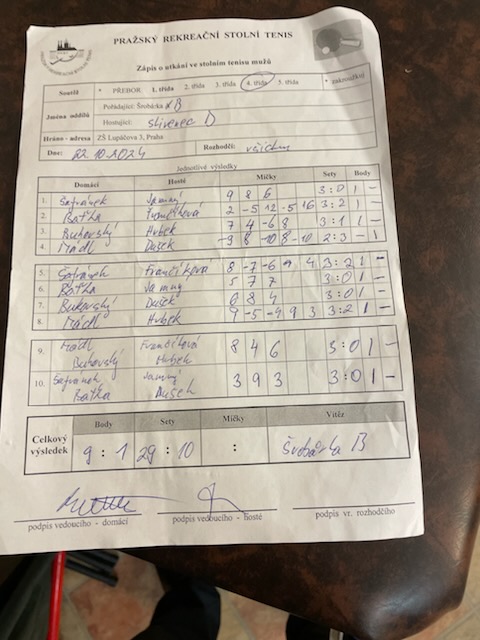 PRAŽSKÝ REKREAČNÍ STOLNÍ TENIS
Zápis o utkání ve stolním tenisu mužů
Soutěž * PŘEBOR 1. třída 2. třída 3. třída 4. třída 5. třída * zakroužkuj
Jméno oddílů Pořádající: Švobárka B
Hostující: Slivenec D
Hráno - adresa ZŠ Lupáčova 3, Praha
Dne: 22.10.2024 Rozhodčí: všichni
Jednotlivé výsledky
Domácí Hosté Míčky Sety Body
1. Šafránek Jamný 9 8 6 3:0 1 -
2. Baťka Frančíková 2 -5 12 -5 16 3:2 1 -
3. Buhovský Hrbek 7 4 -6 8 3:1 1 -
4. Mádl Dušek -9 8 -10 8 -10 2:3 - 1
5. Šafránek Frančíková 8 -7 -6 9 4 3:2 1 -
6. Baťka Jamný 5 7 7 3:0 1 -
7. Buhovský Dušek 6 8 4 3:0 1 -
8. Mádl Hrbek 9 -5 -9 9 3 3:2 1 -
9. Mádl Frančíková 8 4 6 3:0 1 -
Buhovský Hrbek
10. Šafránek Jamný 3 9 3 3:0 1 -
Baťka Dušek
Body Sety Míčky Vítěz
Celkový výsledek 9 : 1 29 : 10 : Švobárka B
podpis vedoucího - domácí podpis vedoucího - hosté podpis vr. rozhodčího